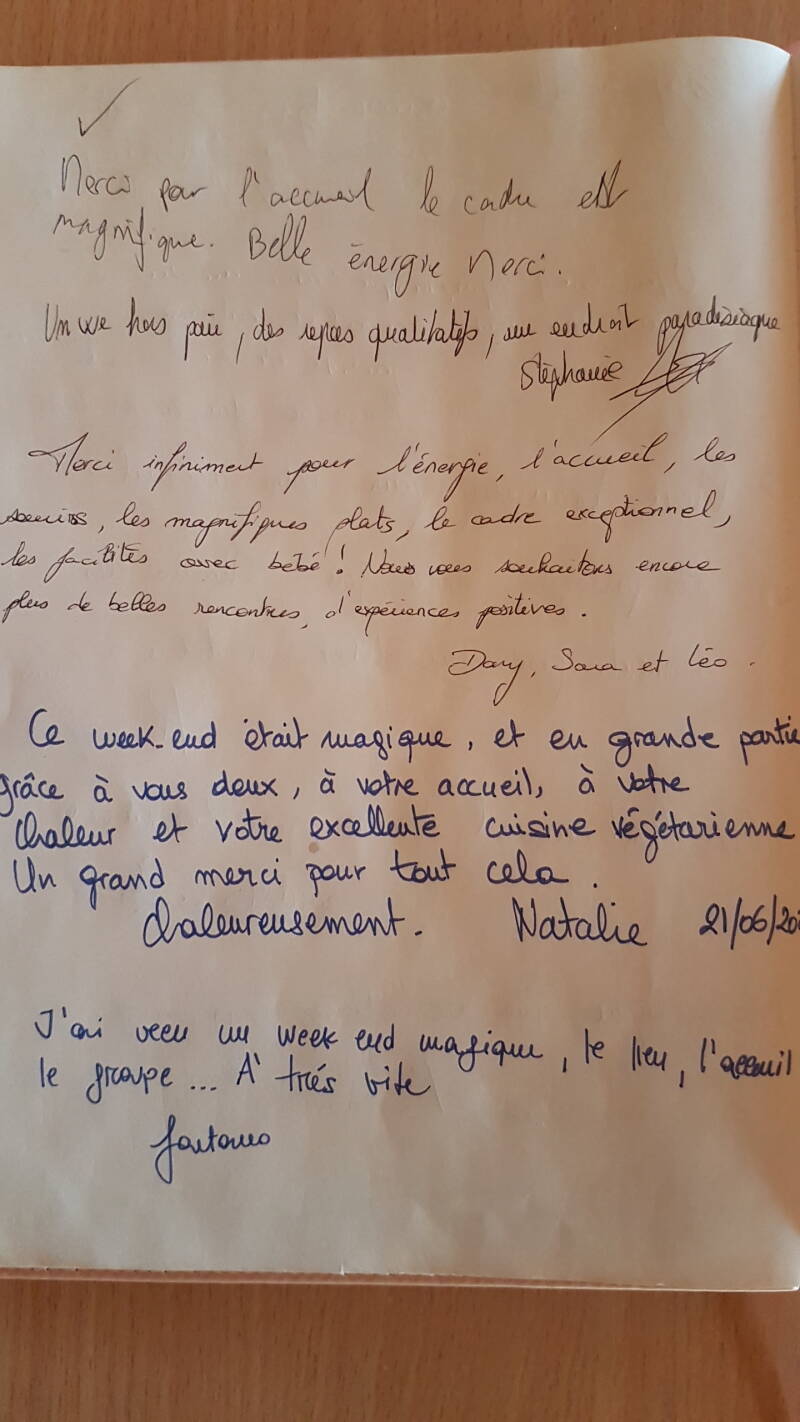 Merci pour l'accueil le cadre est
magnifique. Belle énergie Merci.
Un we hors pair, des repas qualitatifs, un endroit paradisiaque
Stéphanie
Merci infiniment pour l'énergie, l'accueil, les
soins, les magnifiques plats, le cadre exceptionnel,
les facilités avec bébé! Nous vous souhaitons encore
plus de belles rencontres, d'expériences positives.
Dany, Sara et Léo.
Ce week-end était magique, et en grande partie
grâce à vous deux, à votre accueil, à votre
chaleur et votre excellente cuisine végétarienne
Un grand merci pour tout cela.
Chaleureusement. Natalie 21/06/20
J'ai vécu un week end magique, le lieu, l'acceuil
le groupe... A trés vite